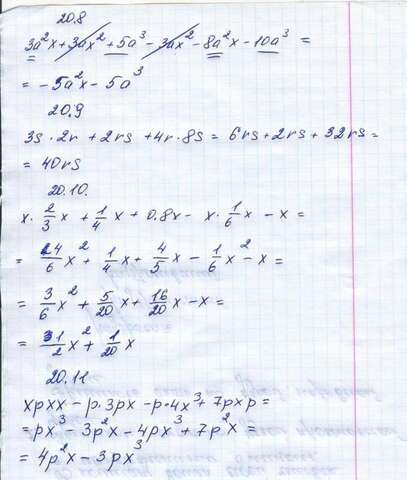 20.8
3a²x + 3ax² + 5a³ - 3ax² - 8a²x - 10a³ =
= -5a²x - 5a³
20.9
3s · 2r + 2rs + 4r · 8s = 6rs + 2rs + 32rs =
= 40rs
20.10.
x · 2/3 x + 1/4 x + 0.8x - x · 1/6 x - x =
= 4/6 x² + 1/4 x + 4/5 x - 1/6 x² - x =
= 3/6 x² + 5/20 x + 16/20 x - x =
= 1/2 x² + 1/20 x
20.11
xpxx - p · 3px - p · 4x³ + 7pxp =
= px³ - 3p²x - 4px³ + 7p²x =
= 4p²x - 3px³